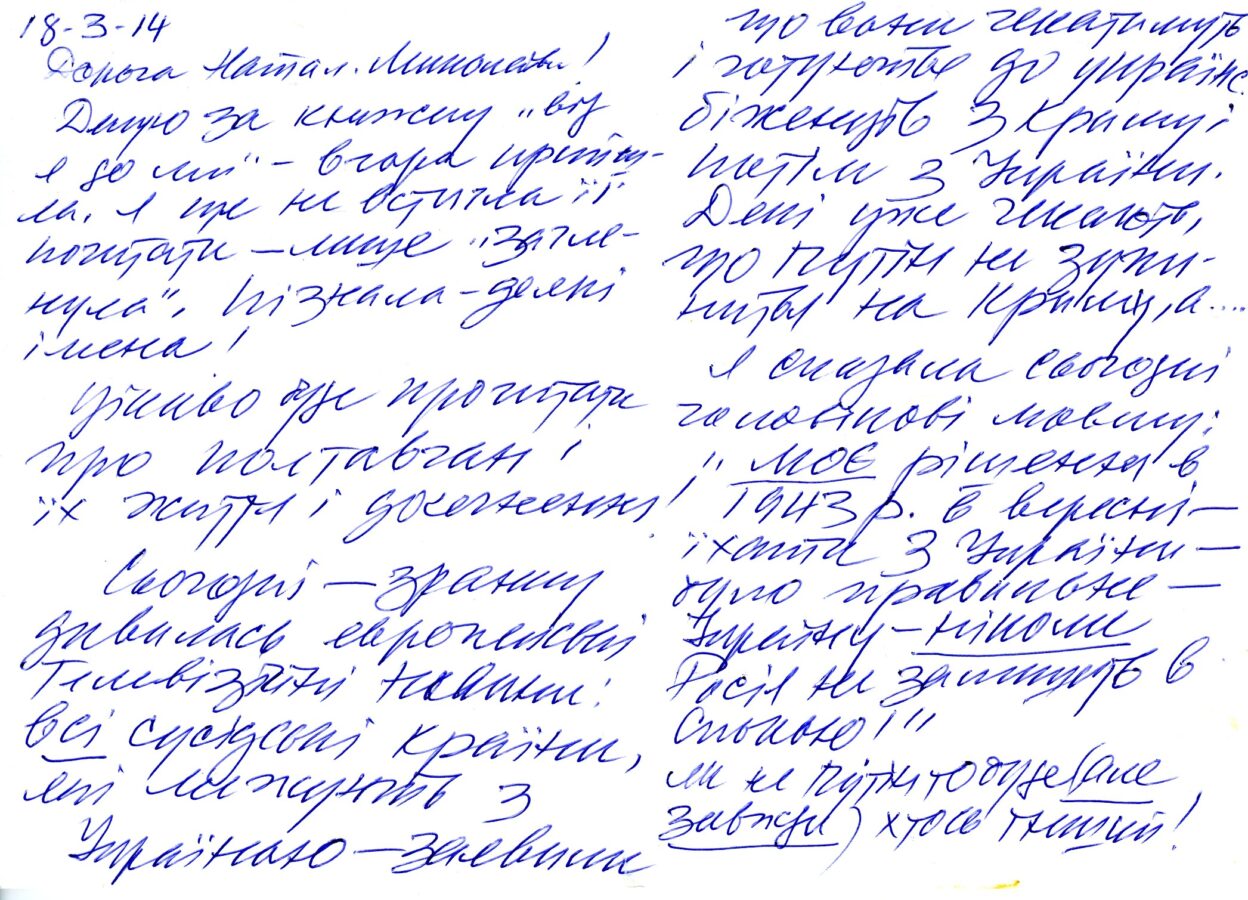 18-3-14
Дорога Натал. Миколаївн!
Дякую за книжку „від
я до ми" – вчора прийш-
ла. Я ще не встигла її
почитати – лише „загля-
нула". Пізнала – деякі
імена!
Цікаво буде прочитати
про полтавчан і
їх життя і досягнення!
Сьогодні – зранку
дивилась европейські
Телевізійні новини:
всі сусідські країни,
які межують з
Україною – заявили
що вони чекатимуть
і готуються до українс.
біженців з Криму і
потім з України.
Деякі уже чекають,
що Путін не зупи-
ниться на Криму, а....
Я сказала сьогодні
чоловікові моєму:
„моє рішення в
1943 р. в вересні –
їхати з України –
було правильне –
Україну – ніколи
Росія не залишить в
спокою!"
як не Путін то буде (але
завжди) хтось інший!